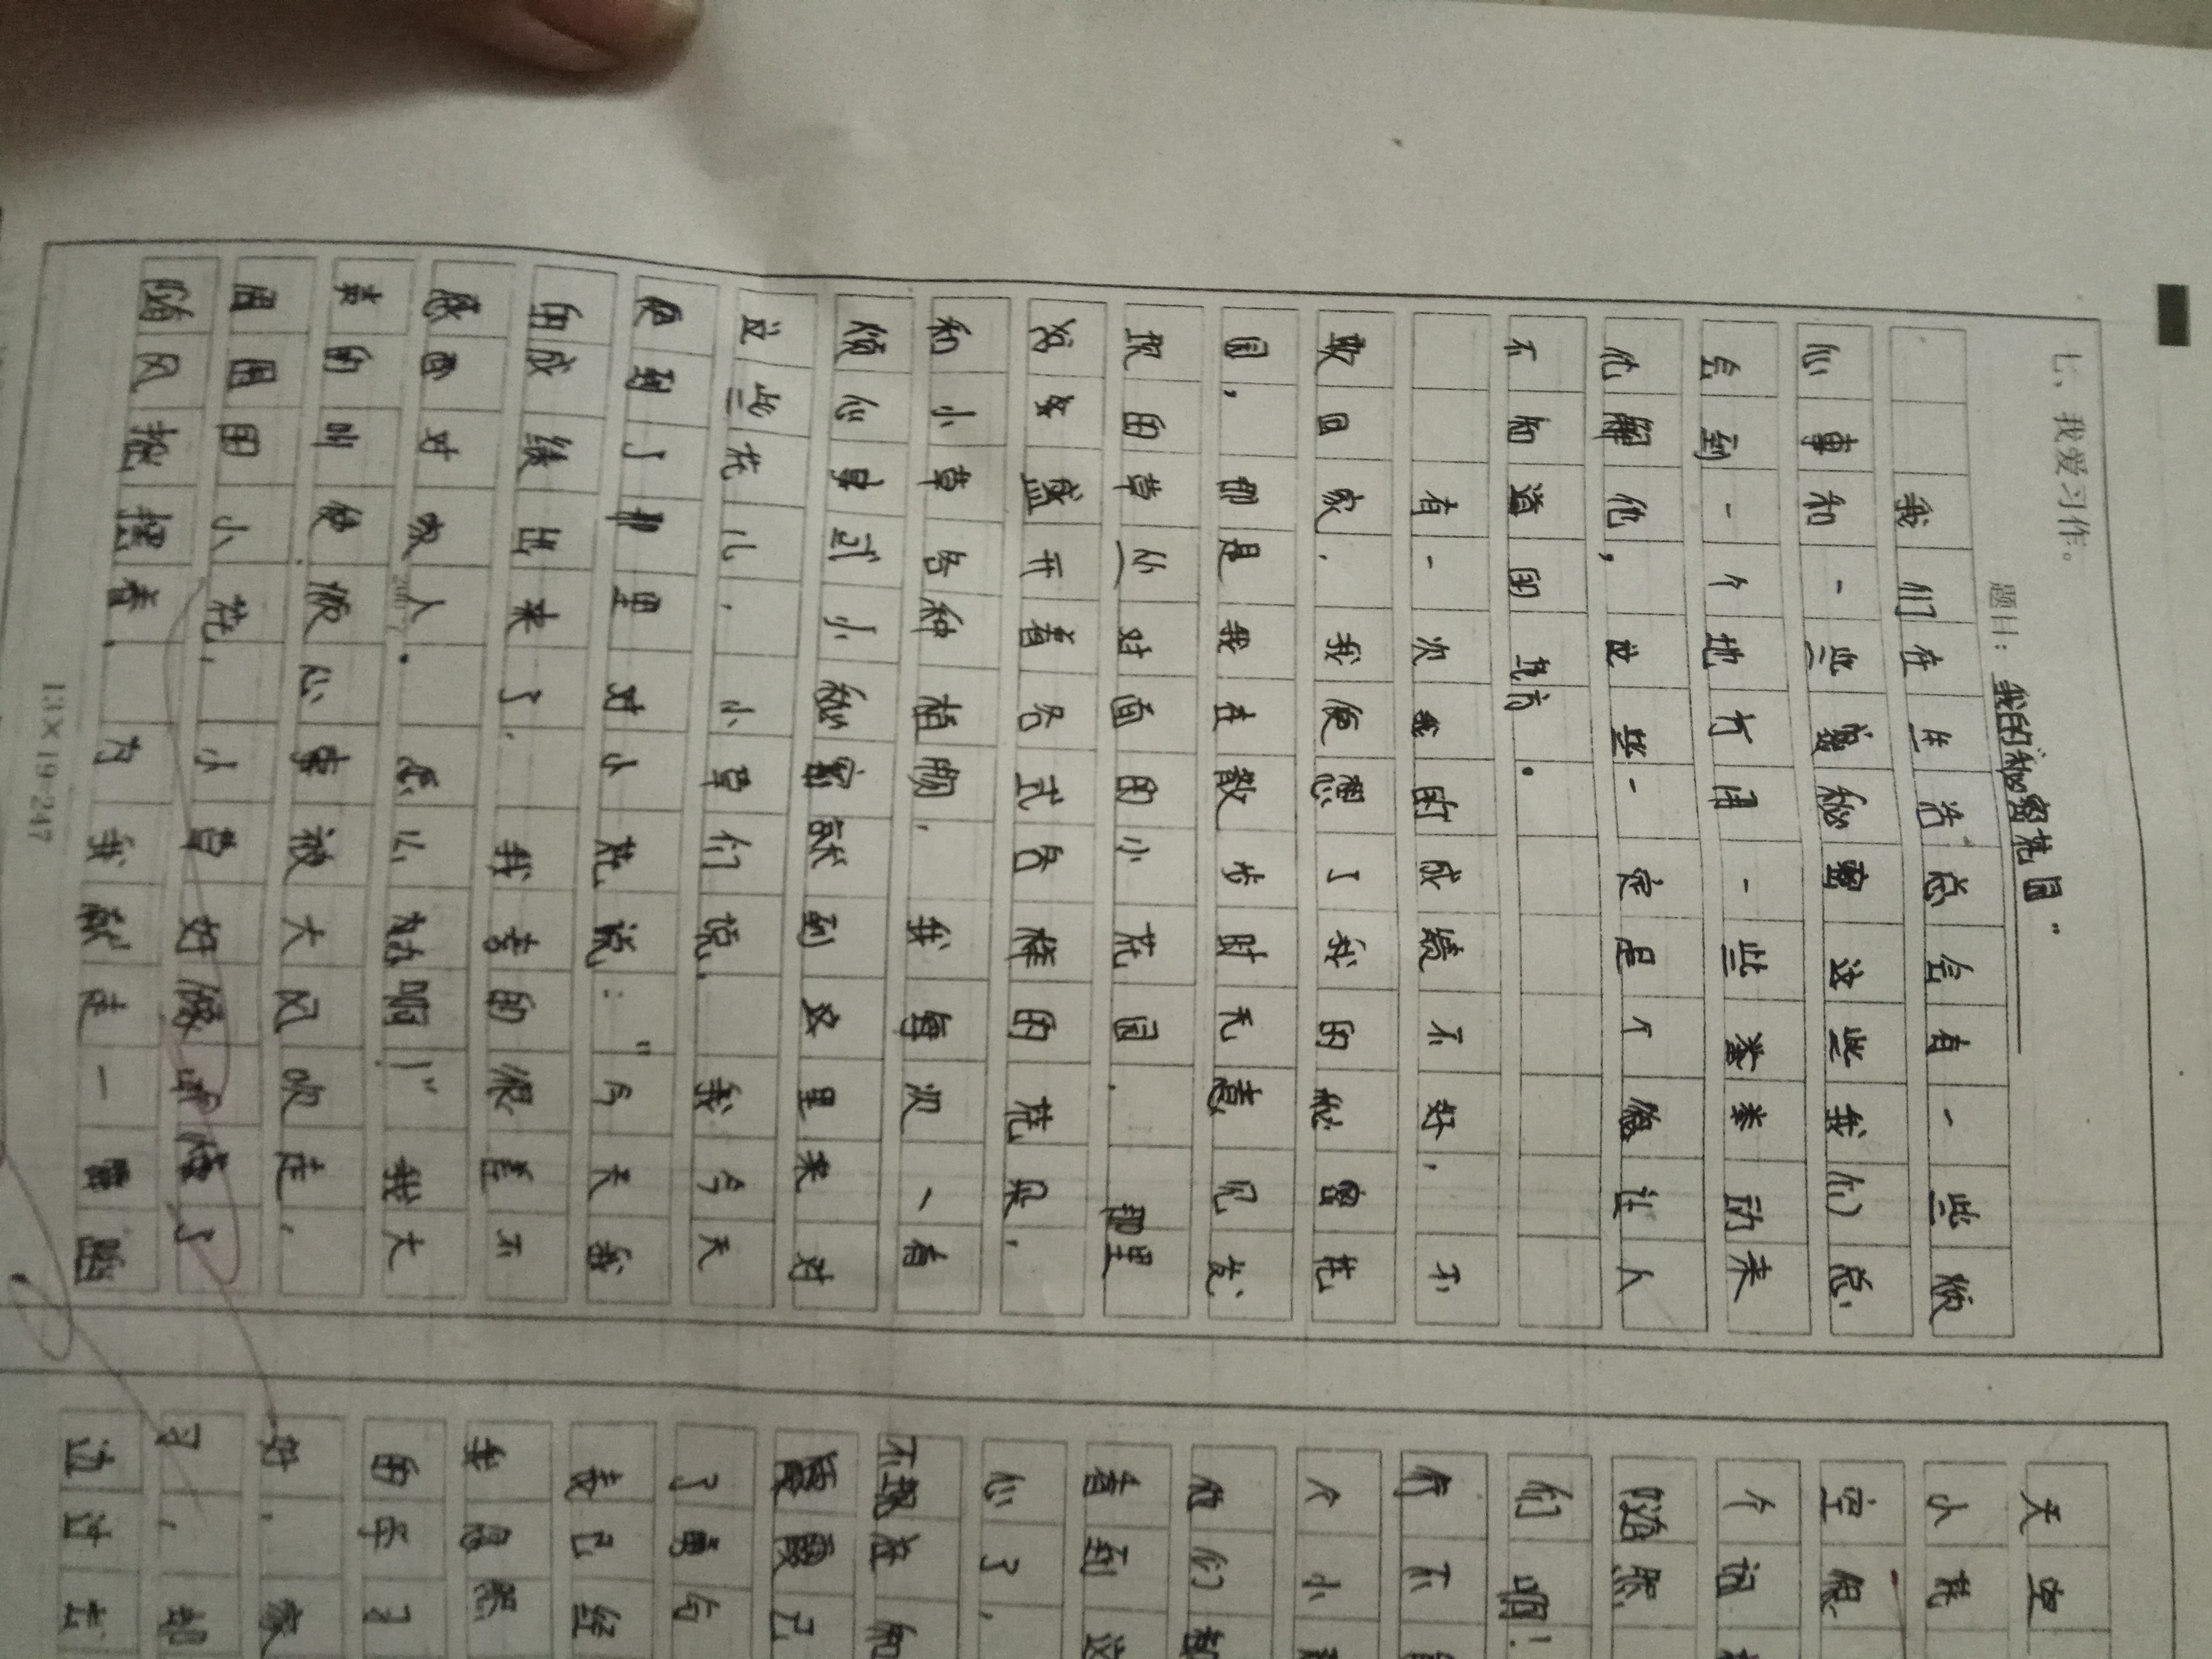 七、我爱习作。
题目：我的“秘密花园”
我们在生活总会有一些烦
心事和一些秘密这些我们总
会到一个地方用一些来
化解他，这些一定是个让人
不知道的地方.
有一次我的成绩不好，不
敢回家，我便想了我的秘密花
园，那是我在散步时无意见发
现的草丛对面的小花园，那里
盛开着各式各样的花朵，
和小草各种植物，我每次一有
烦心事或小秘密就到这里来对
这些花儿，小草们说，我今天
便到了那里对小花说："今天我
的成绩出来了，我考的很差不
愿面对家人.怎么办啊！"我大
声的叫使烦心事被大风吹走，
周围的小花，小草好像听懂了
随风摇摆着，为我献走一
天空
小花
空很
个闪
照
们啊！
不
个小
他们都
看到这
心了，
知
已
了勇气
我已经
来忽然
的
好，家
了，却
边过去